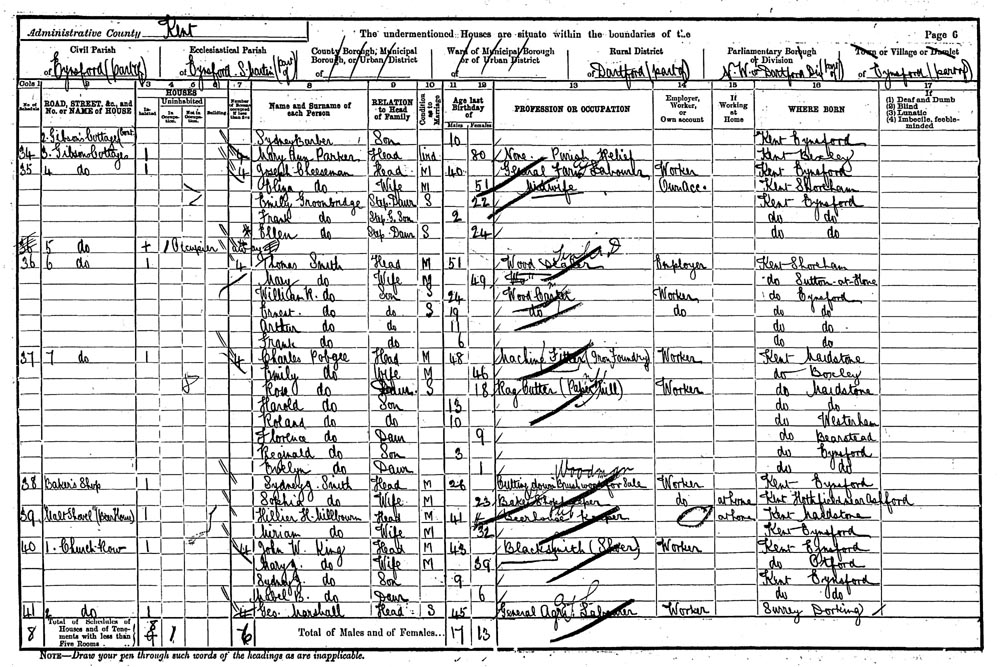 Administrative County Kent
The undermentioned Houses are situate within the boundaries of the
Page 6
Civil Parish of Eynsford (part of)
Ecclesiastical Parish of Eynsford S. Martin (part of)
County Borough, Municipal Borough, or Urban District of
Ward of Municipal Borough or of Urban District of
Rural District of Dartford (part of)
Parliamentary Borough or Division of N.W. or Dartford Div (part of)
Town or Village or Hamlet of Eynsford (part of)
Cols. 1 2 3 4 5 6 7 8 9 10 11 12 13 14 15 16 17
No. of Schedule
ROAD, STREET, &c., and No. or NAME of HOUSE
HOUSES
Inhabited
Uninhabited
In Occupation
Not in Occupation
Building
Number of Rooms occupied if less than five
Name and Surname of each Person
RELATION to Head of Family
Condition as to Marriage
Age last Birthday of
Males Females
PROFESSION OR OCCUPATION
Employer, Worker, or Own account
If Working at Home
WHERE BORN
If
(1) Deaf and Dumb
(2) Blind
(3) Lunatic
(4) Imbecile, feeble-minded
2. Gibson's Cottage (Cont) Sydney Barber Son 10 Kent Eynsford
34 3. Gibsons Cottages 1 4 Mary Ann Parker Head 80 None - Parish Relief Kent Bexley
35 4 do 1 4 Joseph Cheeseman Head M 40 General Farm Labourer Worker Kent Eynsford
do Wife M 51 Midwife Own acc. Kent Shoreham
Emily Groombridge Step Daur S 22 Kent Eynsford
Frank do Step G. Son 2 do do
Ellen do Step Daur S 24 do do
5 do 1 Occupier
36 6 do 1 4 Thomas Smith Head M 51 Wood Dealer Employer Kent Shoreham
Mary do Wife M 49 do Sutton-at-Hone
William R. do Son S 24 Wood Carter Worker do Eynsford
Ernest do do S 19 do do do do
Arthur do do 11 do do
Frank do do 6 do do
37 7 do 1 4 Charles Pobgee Head M 48 Machine Fitter (Iron Foundry) Worker Kent Maidstone
Emily do Wife M 46 do Boxley
Rose do Daur S 18 Rag Cutter (Paper Mill) Worker do Maidstone
Harold do Son 13 do do
Roland do do 10 do Westerham
Florence do Daur 9 do Bearstead
Reginald do Son 3 do Eynsford
Evelyn do Daur 1 do do
Woodman
38 Baker's Shop 1 Sydney J. Smith Head M 26 Cutting down wood for Sale Worker Kent Eynsford
Sophia do Wife M 23 Baker's Shop keeper do at home Kent Hothfield near Ashford
39 Malt Shovel (Beer House) 1 Hillier H. Millbourn Head M 41 Beerhouse Keeper at home Kent Maidstone
Miriam do Wife M 32 Kent Eynsford
40 1. Church Row 1 4 John W. King Head M 43 Blacksmith (Shoer) Worker Kent Eynsford
Mary J. do Wife M 39 do Otford
Sydney J. do Son 9 Kent Eynsford
Mabel B. do Daur 6 do do
41 2 do 1 4 Geo. Marshall Head S 45 General Agri: Labourer Worker Surrey Dorking
8 Total of Schedules of Houses and of Tenements with less than Five Rooms 8 1 6 Total of Males and of Females... 17 13
NOTE—Draw your pen through such words of the headings as are inapplicable.